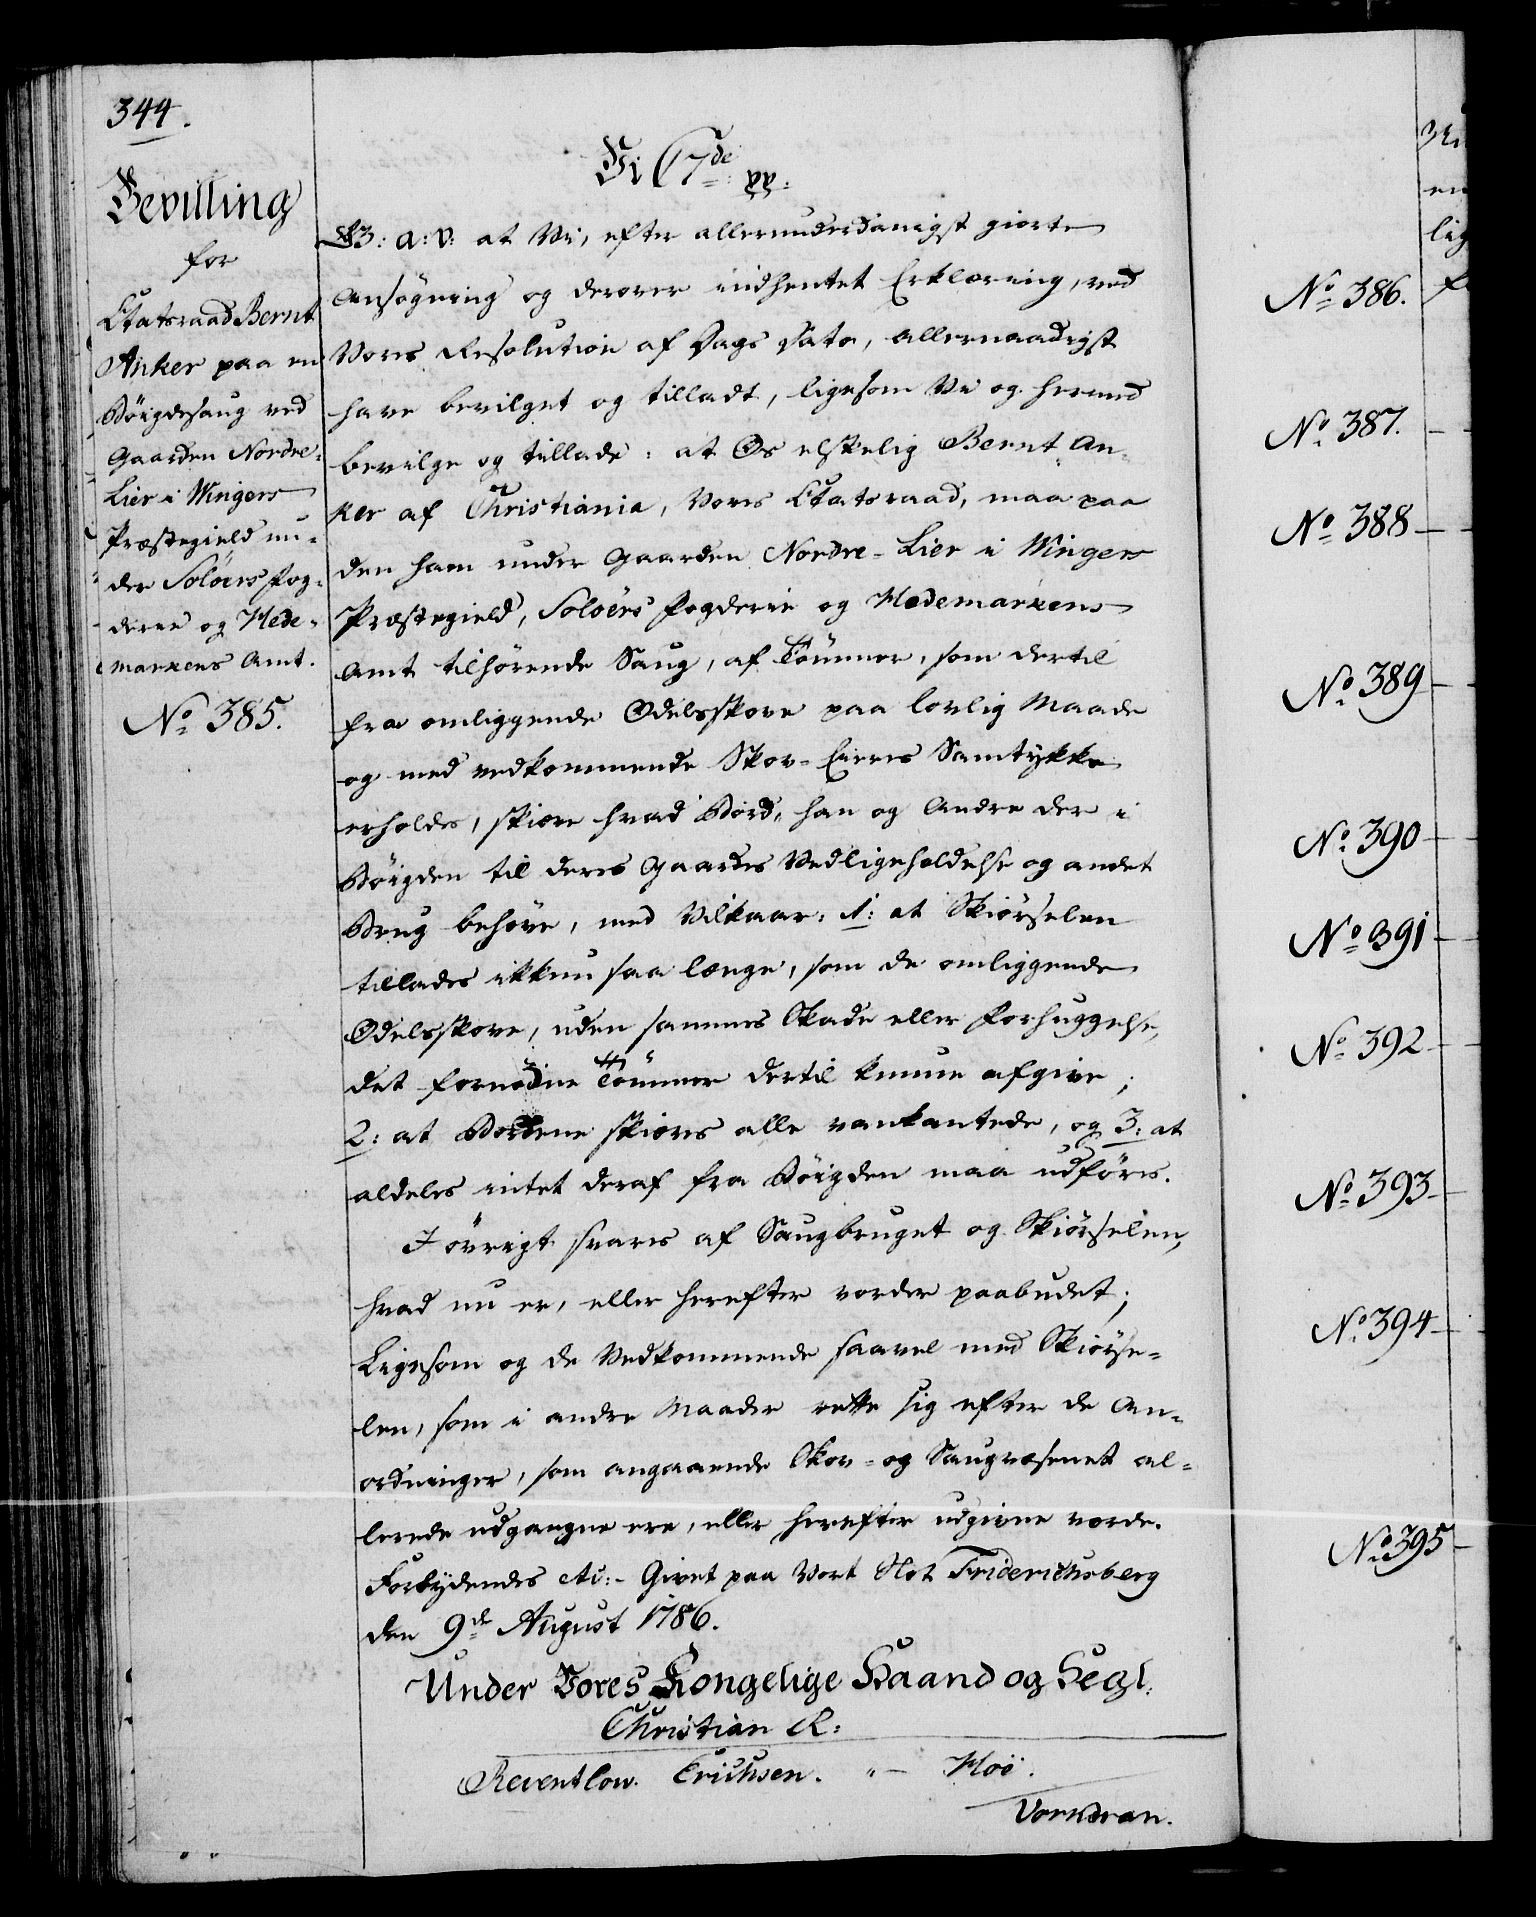 344.
Bevilling
for
Etatsraad Bernt
Anker paa en
Böigdesaug ved
Gaarden Nordre-
Lier i Wingers
Præstegield un-
der Soløers Fog-
derie og Hede-
markens Amt.
No 385.
Vi C 7de pp:
G: a: v: at Vi, efter allerunderdanigst giorte
Ansøgning og derover indhentet Erklæring, ved
Vores Resolution af Dags Dato, allernaadigst
have bevilget og tilladt, ligesom Vi og herved
bevilge og tillade: at Os elskelig Bernt An-
ker af Christiania, Vores Etatsraad, maa paa
den ham under Gaarden Nordre-Lier i Wingers
Præstegield, Soløers Fogderie og Hedemarkens
Amt tilhørende Saug, af Tömmer, som dertil
fra omliggende Odelsskove paa lovlig Maade
og med vedkommende Skov-Eieres Samtykke
erholdes, skiære hvad Bord, han og Andre der i
Böigden til deres Gaardes Vedligeholdelse og andet
Brug behöve, med Vilkaar: 1: at Skiörselen
tillades ikkun saa længe, som de omliggende
Odelsskove, uden sammes Skade eller Forhuggelse,
det fornödne Tömmer dertil kunne afgive;
2: at Bordene skiæres alle vankantede, og 3: at
aldeles intet deraf fra Böigden maa udföres.
I övrigt svares af Saugbruget og Skiörselen,
hvad nu er, eller herefter vorder paabudet;
Ligesom og de Vedkommende saavel med Skiörse-
len, som i andre Maader rette sig efter de An-
ordninger, som angaaende Skov- og Saugvæsenet al-
lerede udgangne ere, eller herefter udgivne vorde.
Forbydendes etc:- Givet paa Vort Slot Friderichsberg
den 9de August 1786.
Under Vores Kongelige Haand og Segl.
Christian R:
Reventlow. Erichsen. " - Höö.
Vorndran.
No 386.
No 387.
No 388
No 389
No 390
No 391
No 392
No 393
No 394
No 395